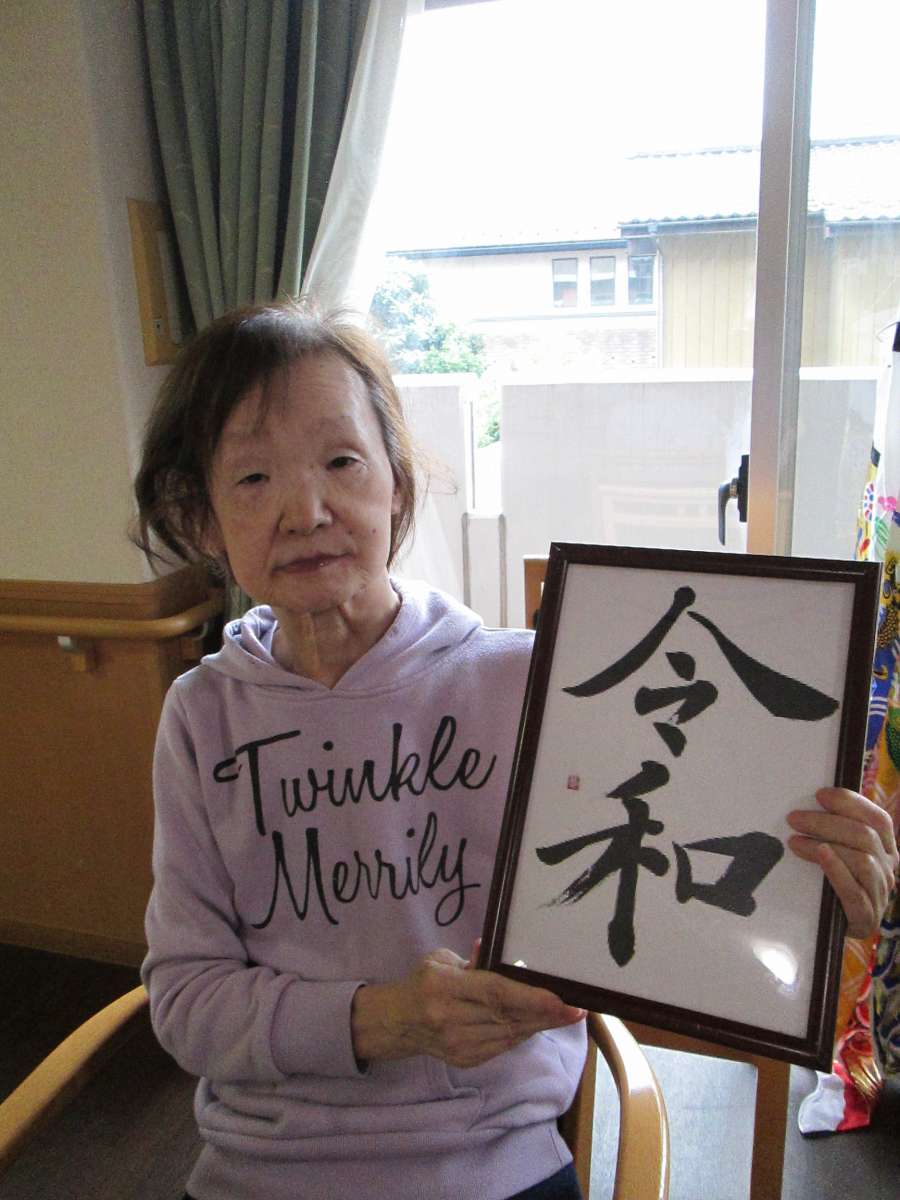 Twinkle
Merrily
令
和